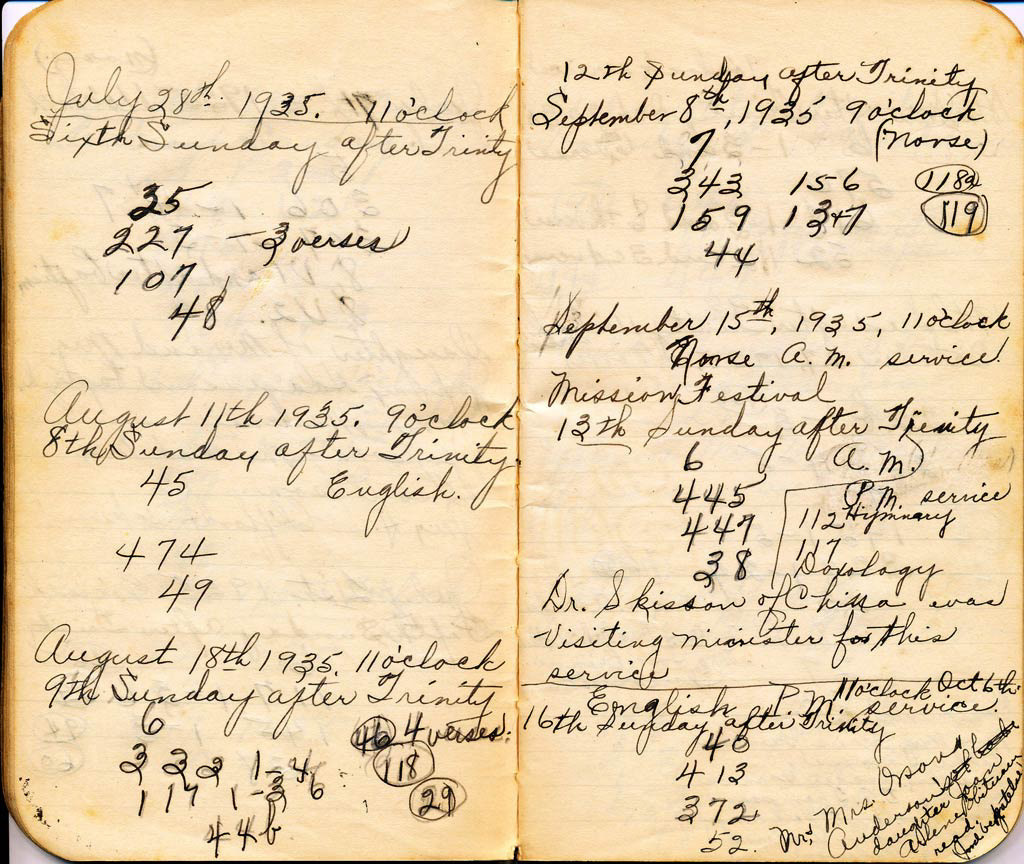 July 28th. 1935. 11 o'clock
Sixth Sunday after Trinity
35
227 - 3 verses
107
48
August 11th 1935. 9 o'clock
8th Sunday after Trinity.
45 English.
474
49
August 18th 1935. 11 o'clock
9th Sunday after Trinity
6 46 4 verses.
332 1-4 118
117 1-36 29
44b
12th Sunday after Trinity
September 8th, 1935 9 o'clock
7 (Norse)
343 156 118a
159 1347 119
44
September 15th, 1935, 11 o'clock
Norse A. M. service.
Mission Festival
13th Sunday after Trinity
6 A. M.
445 P. M. service
447 112 Hymnary
117
38 Doxology
Dr. Skisson of China was
Visiting minister for this
service
English P. M. service.
11 o'clock Oct 6th
16th Sunday after Trinity
40
413
372
52. Mr Mrs.
Anderson's
daughter Joan
Arlene
read.